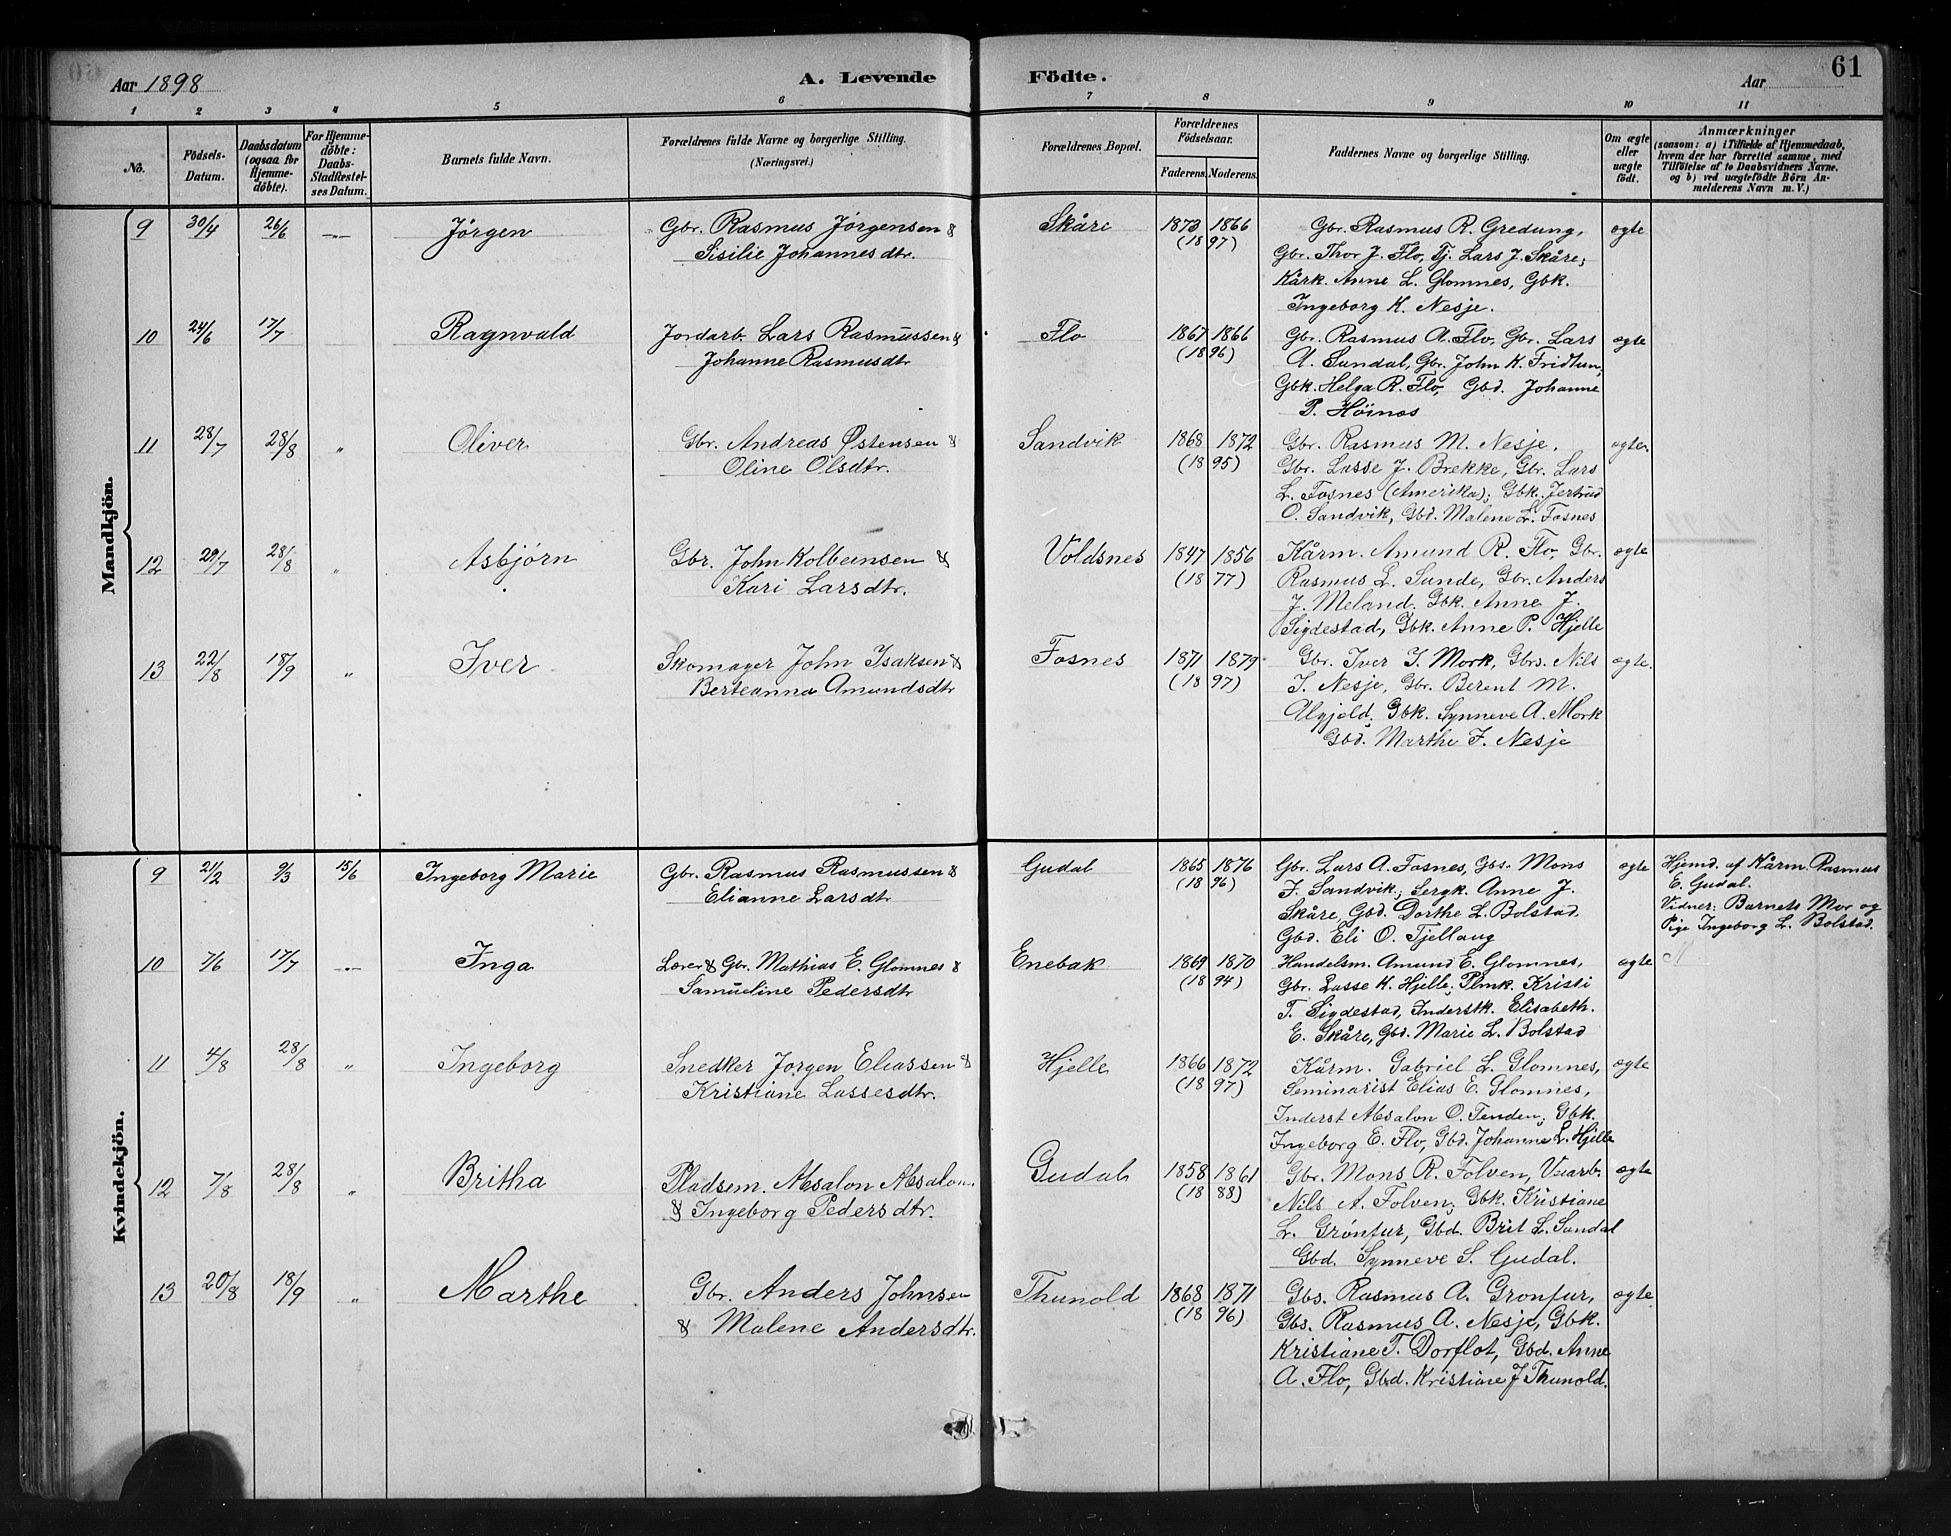 Aar 1898
A. Levende Födte.
Aar
61
1 2 3 4 5 6 7 8 9 10 11
No.
Födsels-Datum.
Daabsdatum (ogsaa for Hjemmedöbte).
For Hjemmedöbte: Daabs-Stadfæstelses Datum.
Barnets fulde Navn.
Forældrenes fulde Navne og borgerlige Stilling. (Næringsvei.)
Forældrenes Bopæl.
Forældrenes Födselsaar.
Faderens. Moderens.
Faddernes Navne og borgerlige Stilling.
Om ægte eller uægte födt.
Anmærkninger
(saasom: a) i Tilfælde af Hjemmedaab,
hvem der har forrettet samme, med
Tilföielse af to Daabsvidners Navne.
og b) ved uægtefödte Börn Anmelderens Navn m. V.)
Mandkjön.
9 30/4 26/6 — Jörgen Gbr. Rasmus Jørgensen & Skåre 1873 1866 Gbr. Rasmus R. Gredung, ægte
Sisilie Johannesdtr. (18 97) Gbr. Thor J. Flo, Tj. Lars J. Skåre;
Kårk. Anne L. Glomnes, Gbk.
Ingeborg K. Nesje.
10 24/6 17/7 Ragnvald Jordarb. Lars Rasmussen & Flo 1867 1866 Gbr. Rasmus A. Flo, Gbr. Lars ægte
Johanne Rasmusdtr (18 96) A. Sundal, Gbr. John K. Fridtun,
Gbk. Helga R. Flo, Gbd. Johanne
P. Höines
11 28/7 28/8 " Oliver Gbr. Andreas Østensen & Sandvik 1868 1872 Gbr. Rasmus M. Nesje, ægte.
Oline Olsdtr. (18 95) Gbr. Lasse J. Brekke, Gbr. Lars
L. Fosnes (Amerika); Gbk. Jertrud
O. Sandvik, Gbd. Malene L. Fosnes
12 29/7 28/8 " Asbjørn Gbr. John Kolbeinsen & Voldsnes 1847 1856 Kårm. Amund R. Flo, Gbr. ægte
Kari Larsdtr. (18 77) Rasmus L. Sunde, Gbr. Anders
J. Meland. Gbk. Anne J.
Sigdestad, Gbk. Anne P. Hjelle
13 22/8 18/9 " Iver Skomager John Isaksen & Fosnes 1871 1879 Gbr. Iver I. Mork, Gbs. Nils ægte.
Berteanna Amundsdtr (18 97) I. Nesje, Gbr. Berent M.
Ulgjeld; Gbk. Synneve A. Mork
Gbd. Marthe I. Nesje
Kvindekjön.
9 21/2 9/3 15/6 Ingeborg Marie Gbr. Rasmus Rasmussen & Gudal 1865 1876 Gbr. Lars A. Fosnes, Gbs. Mons ægte Hjemd. af Kårm. Rasmus
Elianne Larsdtr (18 96) J. Sandvik; Sergk. Anne J. E. Gudal.
Skåre, Gbd. Dorthe L. Bolstad. Vidner: Barnets Mor og
Gbd. Eli O. Tjellaug Pige Ingeborg L. Bolstad.
10 7/6 17/7 — Inga Lærer & Gbr. Mathias E. Glomnes & Enebak 1869 1870 Handelsm. Amund E. Glomnes, ægte
Samueline Pedersdtr (18 94) Gbr. Lasse K. Hjelle; Plmk. Kristi
T. Sigdestad, Inderstk. Elisabeth.
E. Skåre, Gbd. Marie L. Bolstad
11 4/8 28/8 " Ingeborg Snedker Jørgen Eliassen & Hjelle 1866 1872 Kårm. Gabriel L. Glomnes, ægte
Kristiane Lassesdtr. (18 97) Seminarist Elias E. Glomnes,
Inderst Absalon O. Tenden; Gbk.
Ingeborg E. Flo, Gbd. Johanne L. Hjelle
12 7/8 28/8 " Britha Pladsem. Absalon Absalon. Gudal 1858 1861 Gbr. Mons R. Folven, Veiarb. ægte
& Ingeborg Pedersdtr. (18 88) Nils A. Folven; Gbk. Kristiane
L. Grønfur, Gbd. Brit L. Sundal
Gbd. Synneve S. Gudal.
13 20/8 18/9 " Marthe Gbr. Anders Johnsen Thunold 1868 1871 Gbs. Rasmus A. Grönfur, ægte
& Malene Andersdtr. (18 96) Gbs. Rasmus A. Nesje, Gbk.
Kristiane T. Dorflot, Gbd. Anne
A. Flo, Gbd. Kristiane J Thunold.